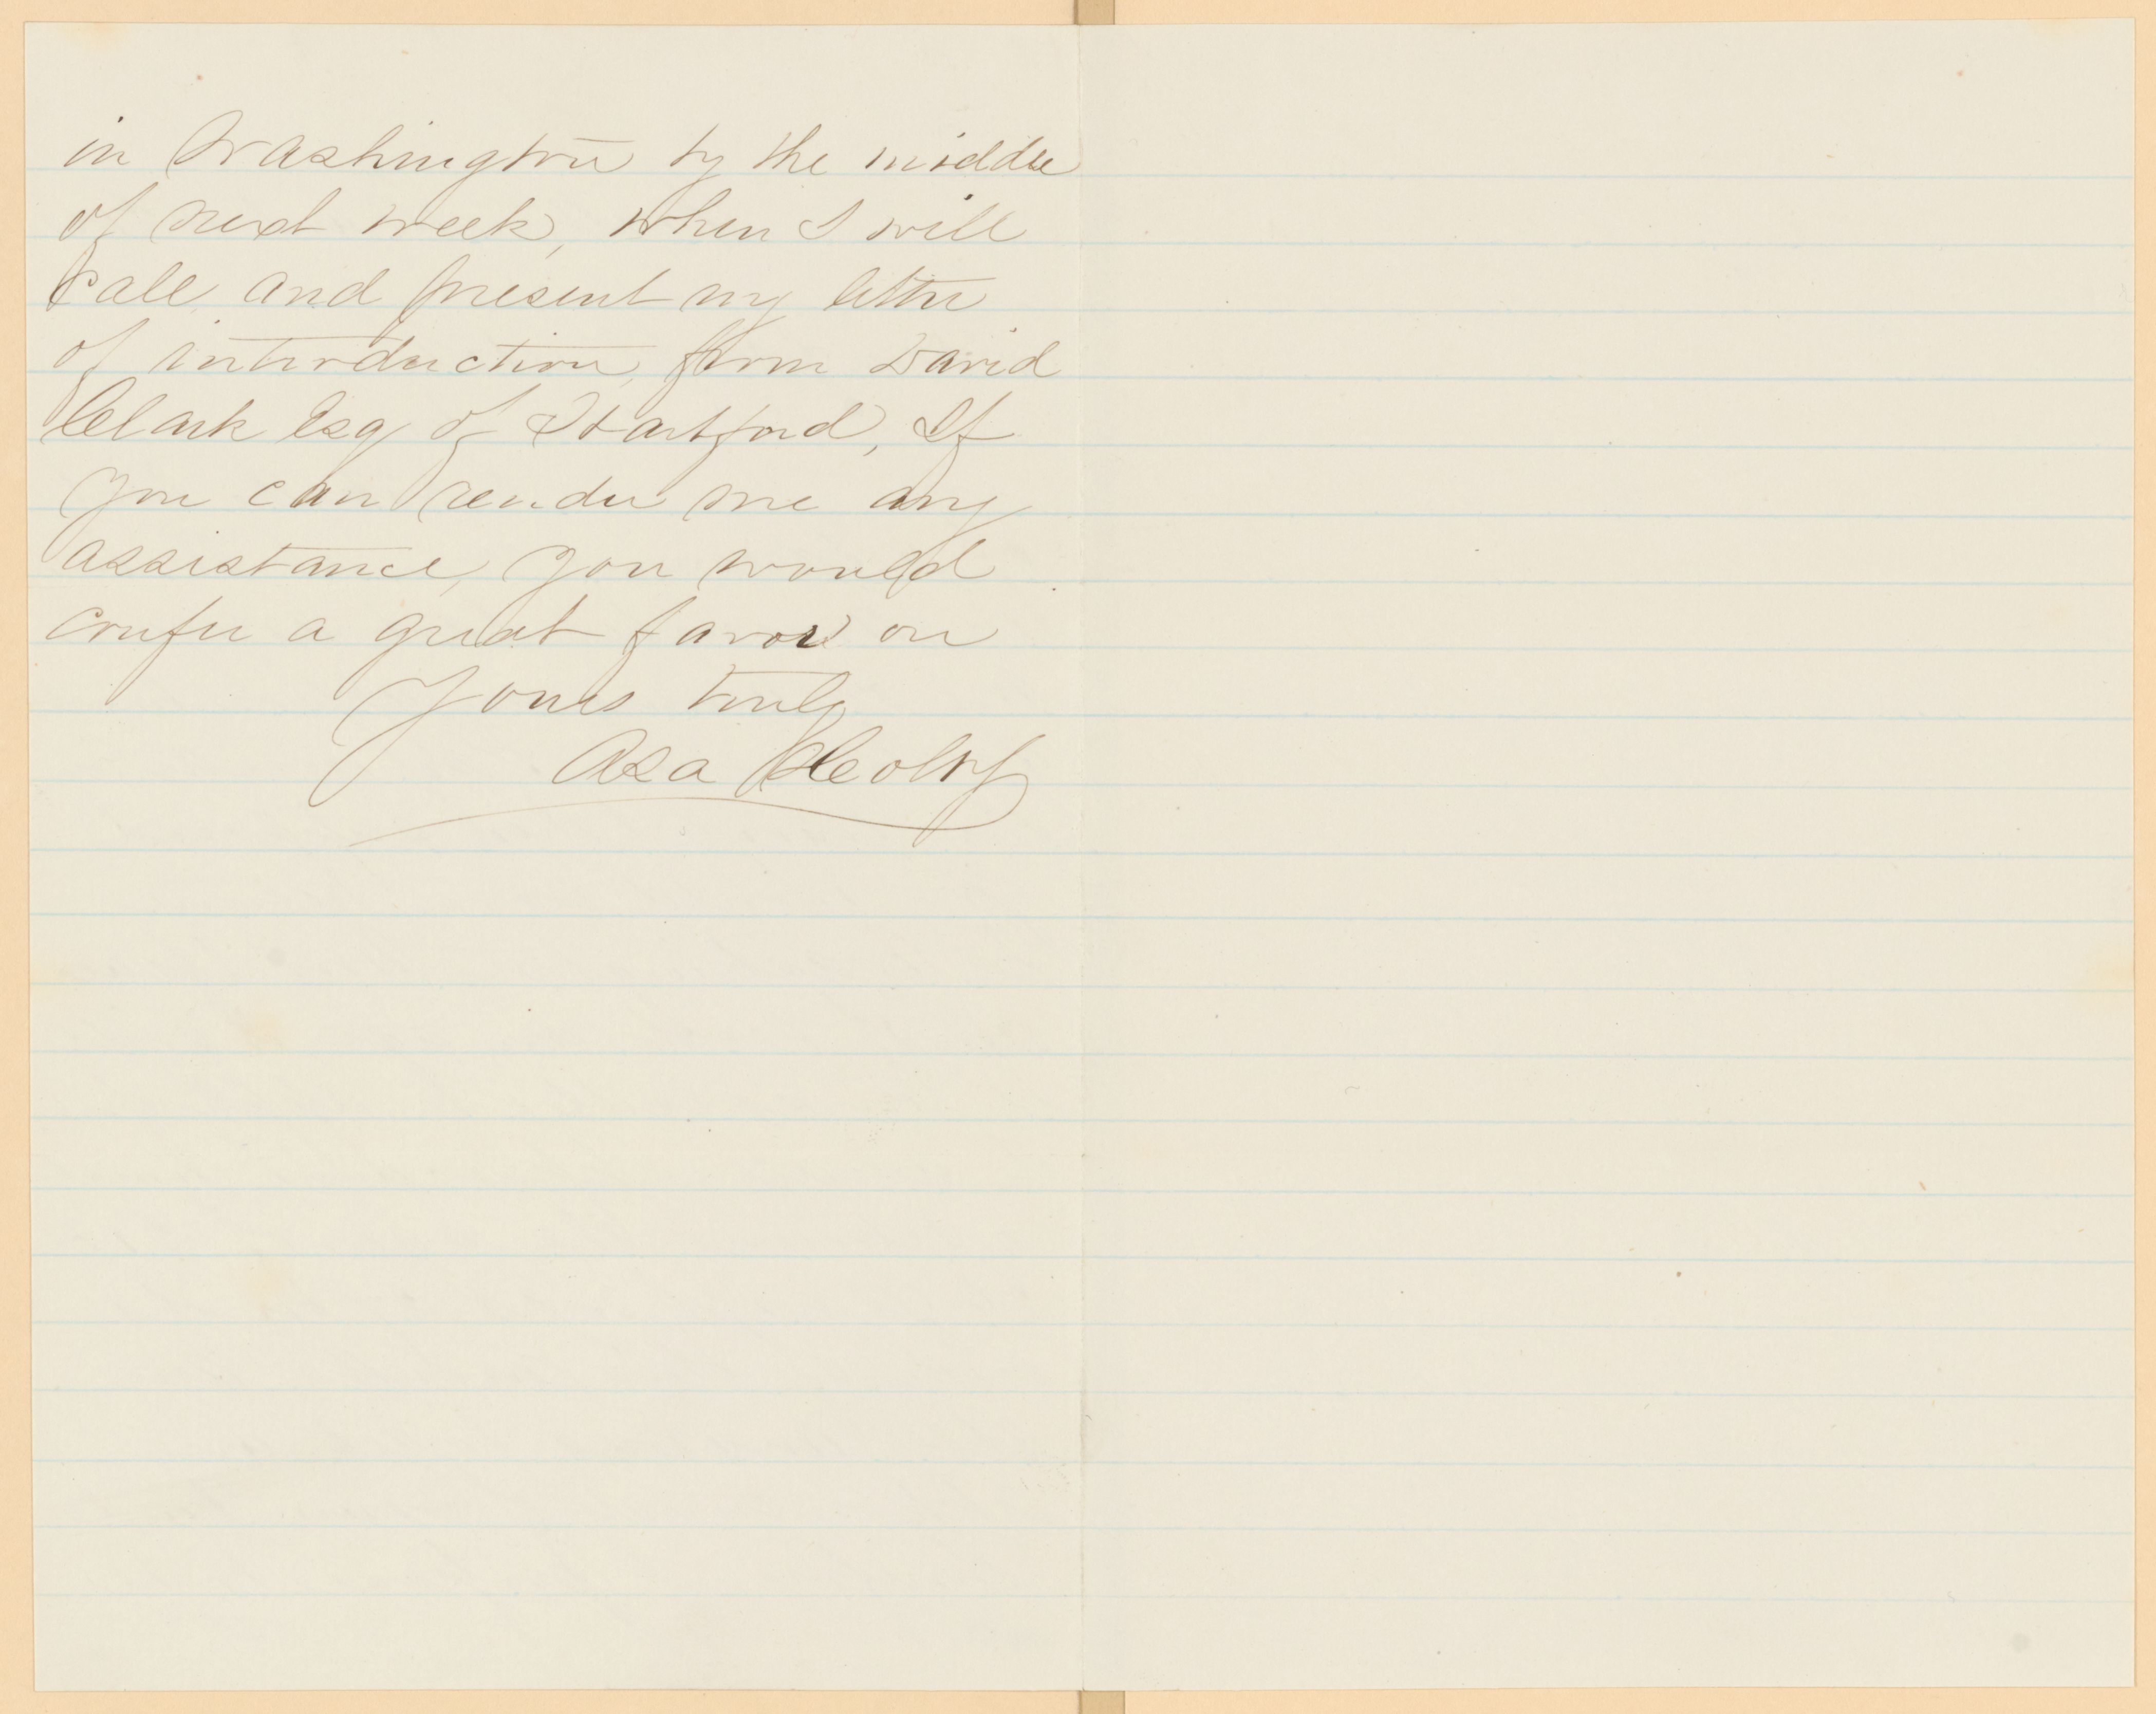 in Washington by the middle
of next week, when I will
call and present my letter
of introduction, from David
Clark Esq of Hartford, If
you can render me any
assistance, you would
confer a great favor on
Yours truly
Asa